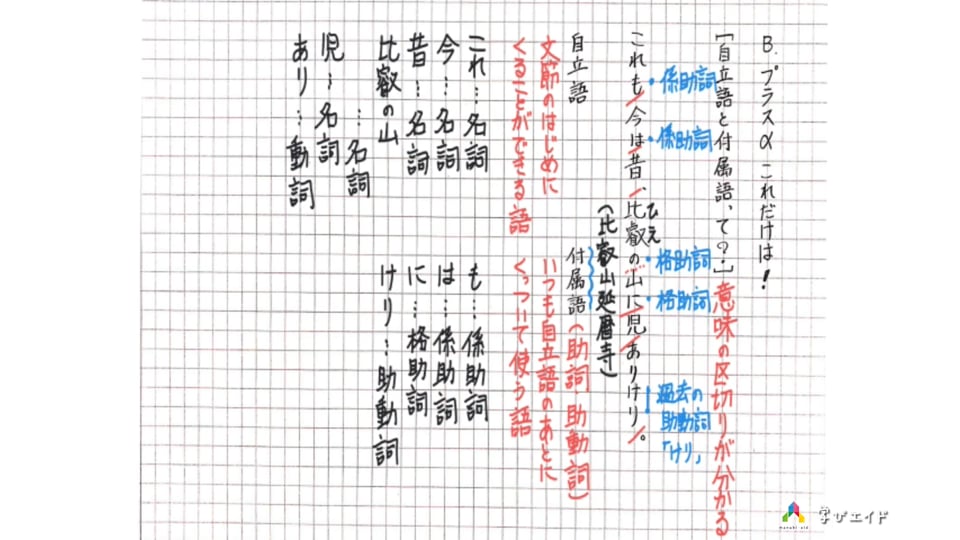 B. プラスα これだけは！
[自立語と付属語、って？]意味の区切りが分かる
・係助詞
・係助詞
・格助詞
・格助詞
過去の
助動詞
「けり」
これも/今は/昔、/比叡の/山に/児/ありけり/。
ひえ
(比叡山延暦寺)
自立語
文節のはじめに
くることができる語
これ…名詞
今…名詞
昔…名詞
比叡の山
…名詞
児…名詞
あり…動詞
付属語(助詞・助動詞)
いつも自立語のあとに
くっついて使う語
も…係助詞
は…係助詞
に…格助詞
けり…助動詞
学びエイド